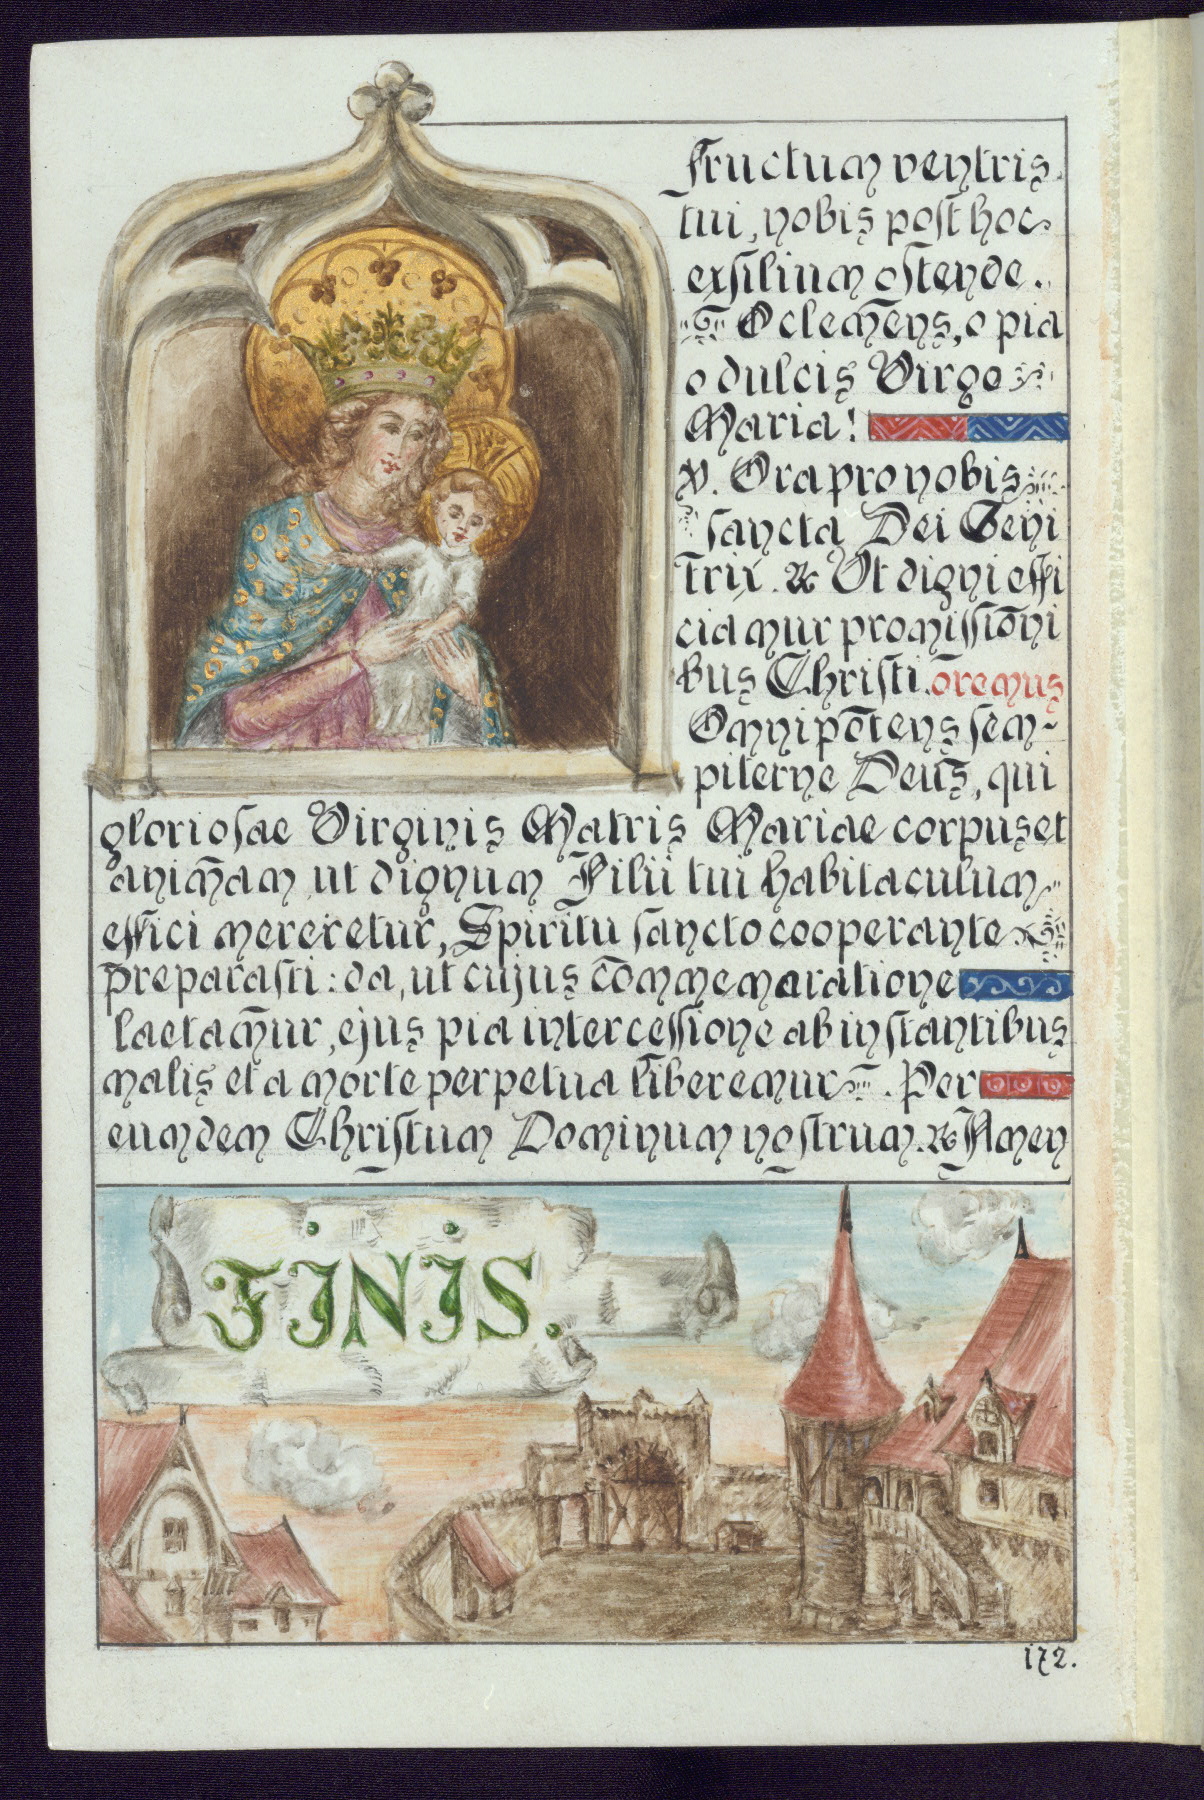 fructum ventris
tui, nobis post hoc
exsilium ostende.
O clemens, o pia
o dulcis Virgo
Maria!
V. Ora pro nobis
sancta Dei Geni
trix. R Ut digni effi
ciamur promissioni
bus Christi. Oremus
Omnipotens sem-
piterne Deus, qui
gloriosae Virginis Matris Mariae corpus et
animam ut dignum Filii tui habitaculum
effici mereretur, Spiritu sancto cooperante
preparasti: da, ut cujus commemaratione
laetamur, ejus pia intercessione ab instantibus
malis et a morte perpetua liberemur. Per
eumdem Christum Dominum nostrum. R Amen
FINIS.
172.